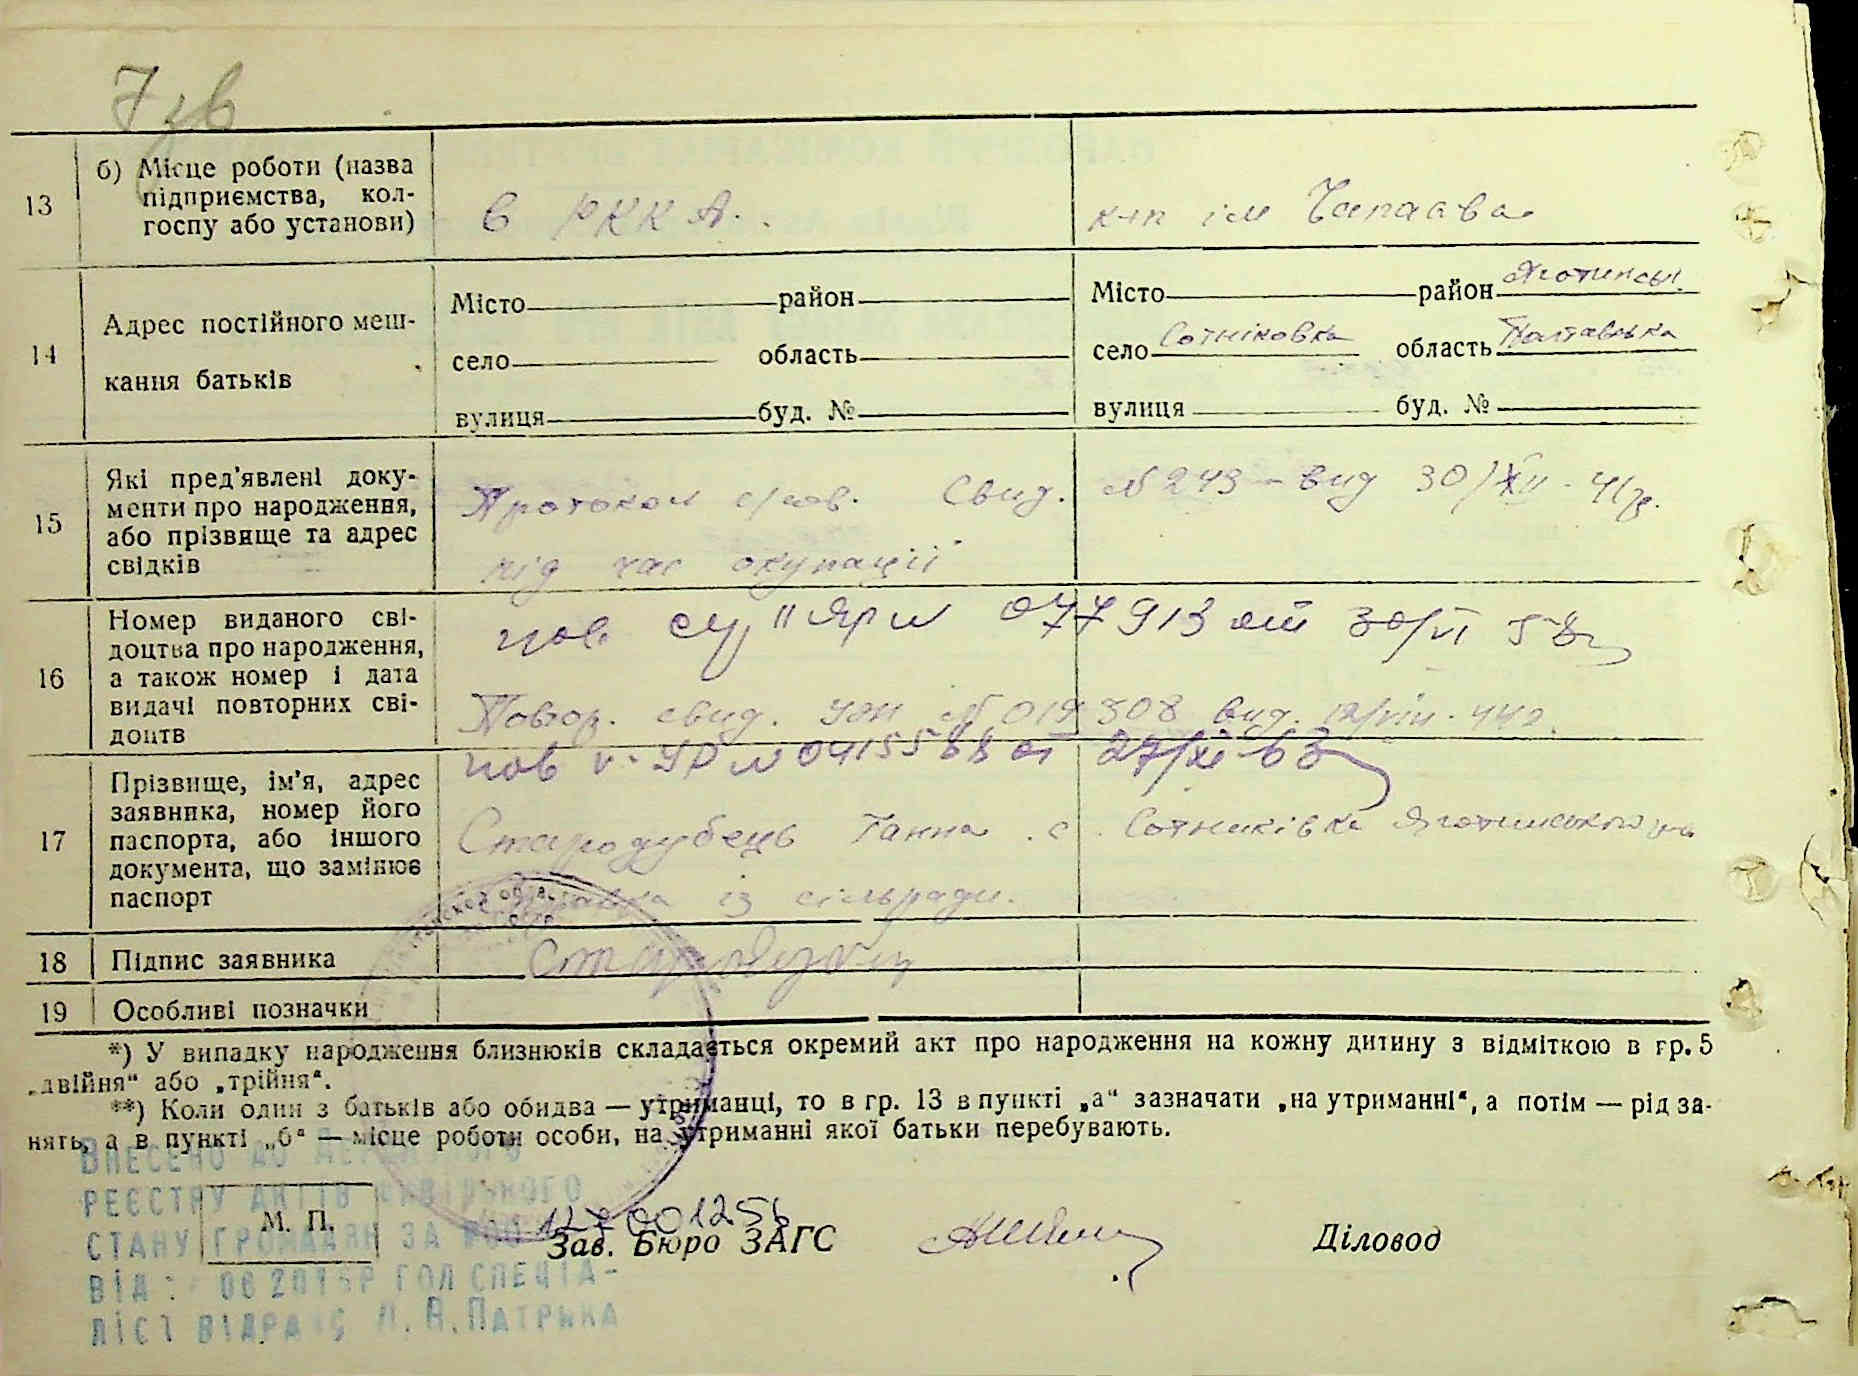 7зв
13
б) Місце роботи (назва
підприємства, кол-
госпу або установи)
в РККА.
к-п ім Чапаєва
14
Адрес постійного меш-
кання батьків
Місто район
село область
вулиця буд. №
Місто район Яготинськ.
село Сотніковка область Полтавська
вулиця буд. №
15
Які пред'явлені доку-
менти про народження,
або прізвище та адрес
свідків
Протокол Свид. № 243 - вид 30/XII - 41р.
під час окупації
16
Номер виданого сві-
доцтва про народження,
а також номер і дата
видачі повторних сві-
доцтв
пов 077913 від 30/VI 58
Повтор. свид. № 019308 вид. 12/VIII - 44р.
пов УР № 0415568 от 27/XI-63
17
Прізвище, ім'я, адрес
заявника, номер його
паспорта, або іншого
документа, що замінює
паспорт
Стародубець Ганна с. Сотниківка Яготинського
із сільради.
18
Підпис заявника
Стародубец
19
Особливі позначки
*) У випадку народження близнюків складається окремий акт про народження на кожну дитину з відміткою в гр. 5
„двійня“ або „трійня“.
**) Коли один з батьків або обидва — утриманці, то в гр. 13 в пункті „а“ зазначати „на утриманні“, а потім — рід за-
нять, а в пункті „б“ — місце роботи особи, на утриманні якої батьки перебувають.
ВНЕСЕНО ДО ДЕРЖАВНОГО
РЕЄСТРУ АКТІВ ЦИВІЛЬНОГО
СТАНУ ГРОМАДЯН ЗА №00
ВІД : 06 201 Р ГОЛ СПЕЦІА-
ЛІСТ ВІДРАЦС ПАТРЬКА
М. П.
Зав. Бюро ЗАГС
Діловод